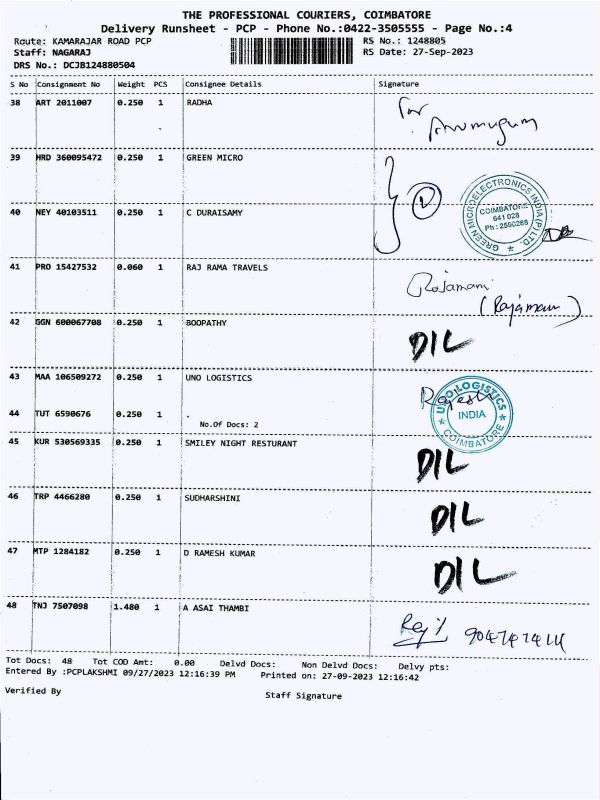 THE PROFESSIONAL COURIERS, COIMBATORE
Delivery Runsheet - PCP - Phone No.:0422-3505555 - Page No.:4
Route: KAMARAJAR ROAD PCP RS No.: 1248805
Staff: NAGARAJ RS Date: 27-Sep-2023
DRS No.: DCJB124880504
S No Consignment No Weight PCS Consignee Details Signature
38 ART 2011007 0.250 1 RADHA
For Arumugum
39 HRD 360095472 0.250 1 GREEN MICRO
40 NEY 40103511 0.250 1 C DURAISAMY
GREEN MICROELECTRONICS INDIA (P) LTD.
COIMBATORE
641 028
Ph : 2590268
41 PRO 15427532 0.060 1 RAJ RAMA TRAVELS
Rajamani
(Rajamani)
42 GGN 600067708 0.250 1 BOOPATHY
DIL
43 MAA 106509272 0.250 1 UNO LOGISTICS
Rajesh
UNO LOGISTICS
INDIA
COIMBATORE
44 TUT 6590676 0.250 1 .
No.Of Docs: 2
45 KUR 530569335 0.250 1 SMILEY NIGHT RESTURANT
DIL
46 TRP 4466280 0.250 1 SUDHARSHINI
DIL
47 MTP 1284182 0.250 1 D RAMESH KUMAR
DIL
48 TNJ 7507098 1.480 1 A ASAI THAMBI
Tot Docs: 48 Tot COD Amt: 0.00 Delvd Docs: Non Delvd Docs: Delvy pts:
Entered By :PCPLAKSHMI 09/27/2023 12:16:39 PM Printed on: 27-09-2023 12:16:42
Verified By Staff Signature